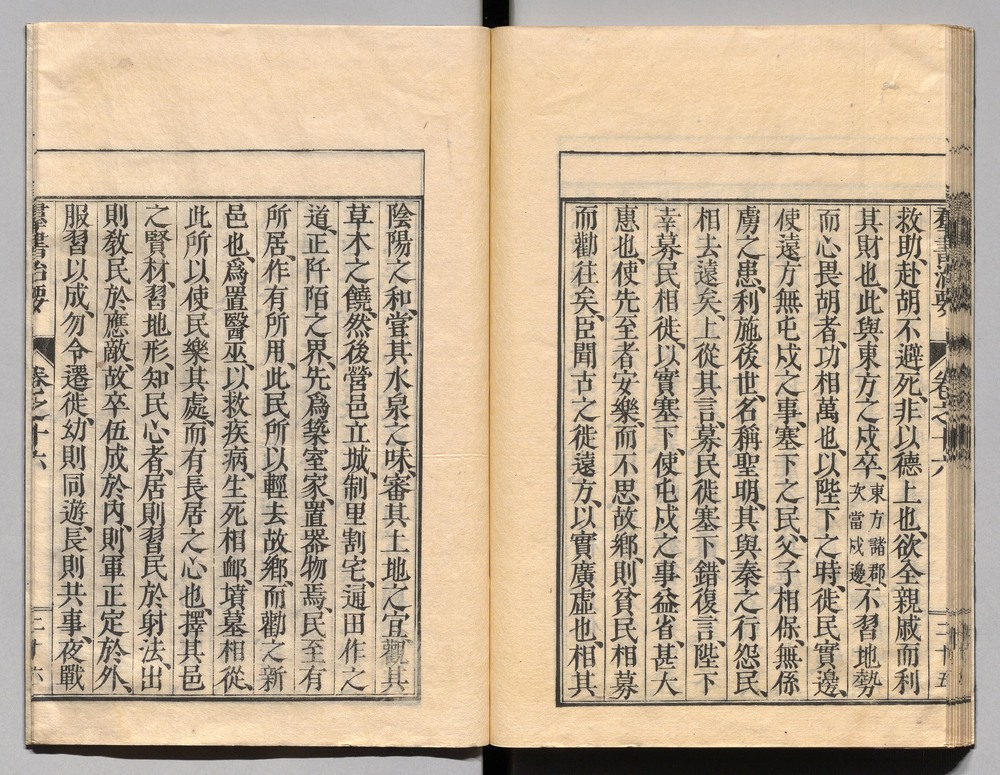 救助、赴胡不避死、非以德上也、欲全親戚而利
其財也、此與東方之戍卒、東方諸郡、次當戍邊、不習地勢
而心畏胡者、功相萬也、以陛下之時、徙民實邊、
使遠方無屯戍之事、塞下之民、父子相保、無係
虜之患、利施後世、名稱聖明、其與秦之行怨民、
相去遠矣、上從其言、募民徙塞下、錯復言、陛下
幸募民相徙、以實塞下、使屯戍之事益省、甚大
惠也、使先至者安樂、而不思故鄉、則貧民相募
而勸往矣、臣聞古之徙遠方、以實廣虛也、相其
陰陽之和、嘗其水泉之味、審其土地之宜、觀其
草木之饒、然後營邑立城、制里割宅、通田作之
道、正阡陌之界、先爲築室家、置器物焉、民至有
所居、作有所用、此民所以輕去故鄉、而勸之新
邑也、爲置醫巫、以救疾病、生死相卹、墳墓相從、
此所以使民樂其處、而有長居之心也、擇其邑
之賢材、習地形、知民心者、居則習民於射法、出
則教民於應敵、故卒伍成於內、則軍正定於外、
服習以成、勿令遷徙、幼則同遊、長則共事、夜戰
羣書治要 卷之十六 三十六